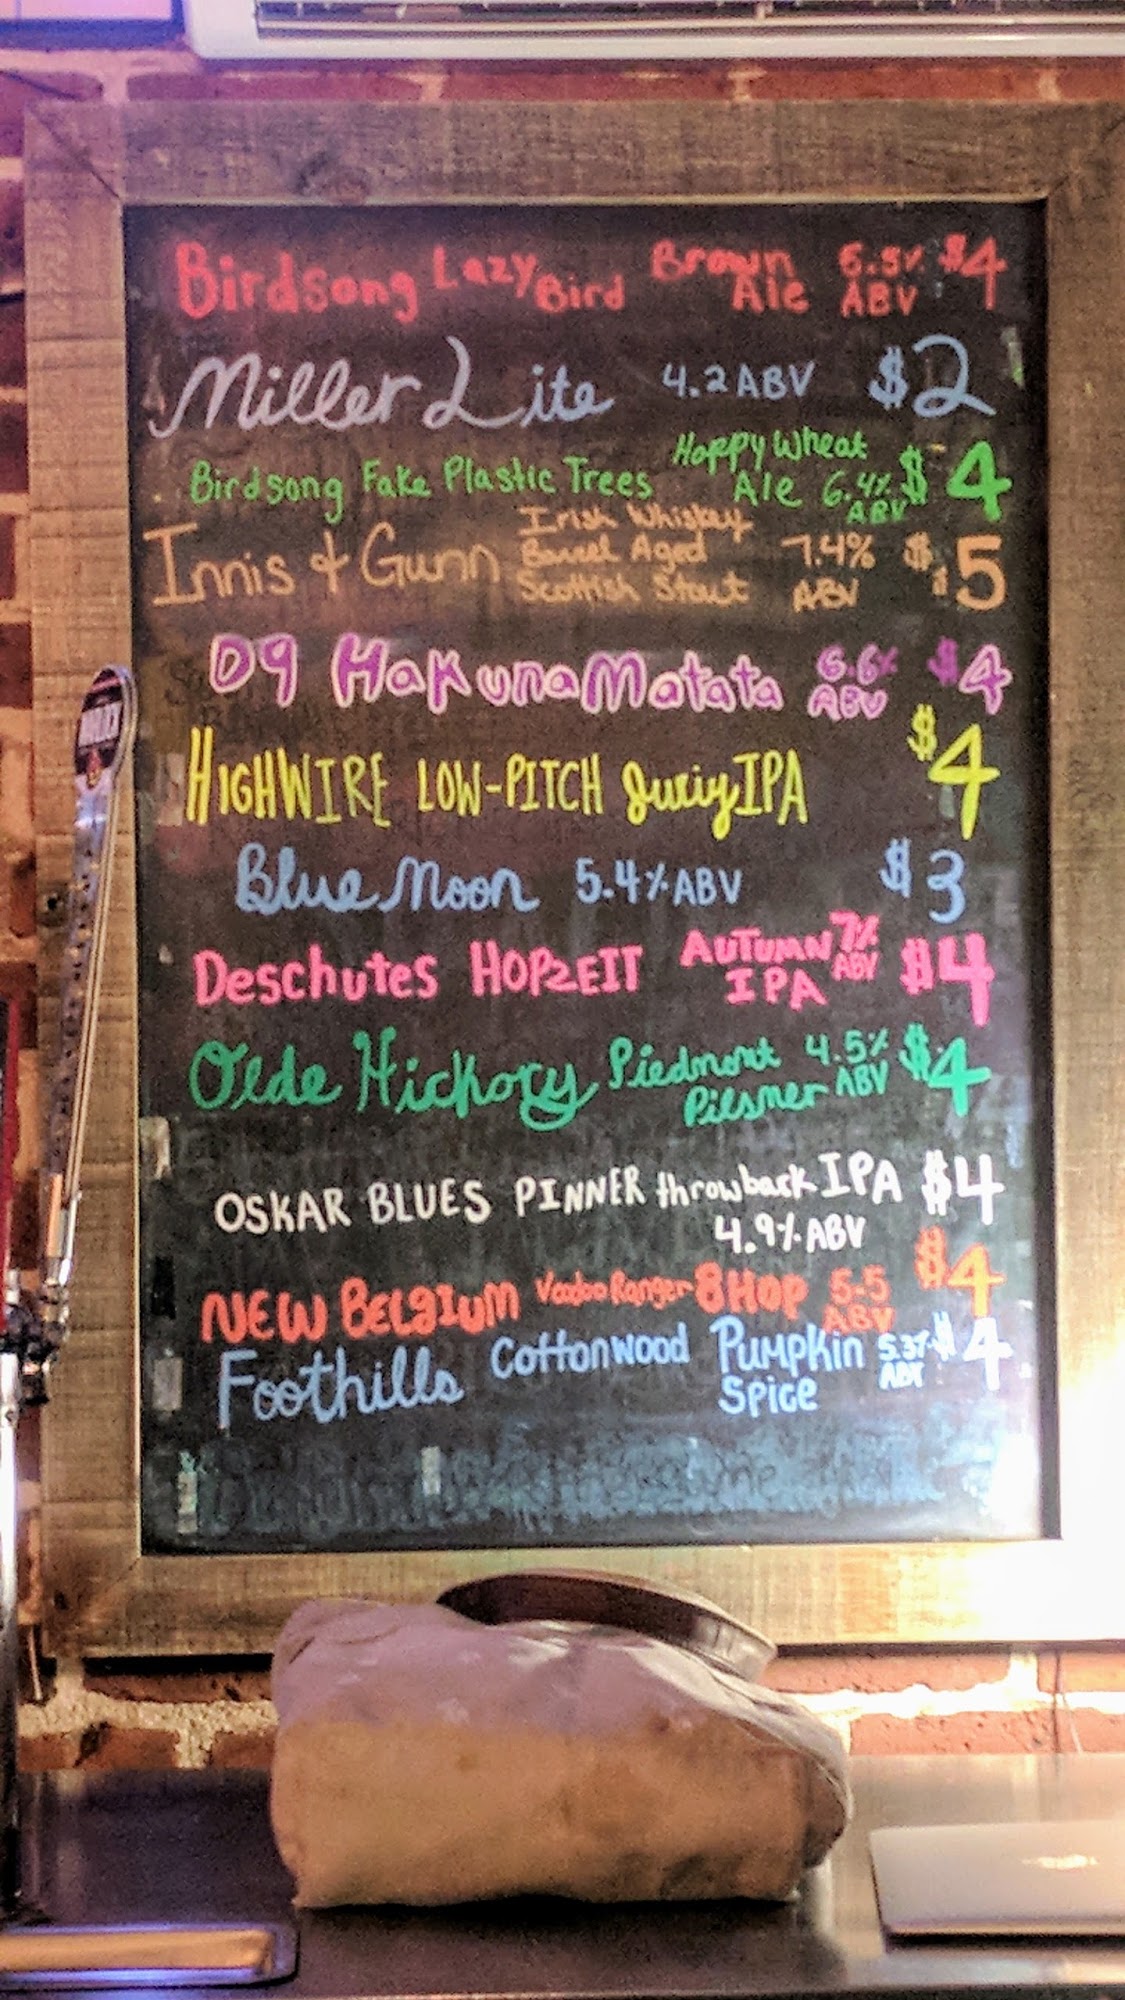 Birdsong Lazy Bird Brown Ale 5.5% ABV $4
Miller Lite 4.2 ABV $2
Birdsong Fake Plastic Trees Hoppy Wheat Ale 6.4% ABV $4
Innis & Gunn Irish Whiskey Barrel Aged Scottish Stout 7.4% ABV $5
D9 Hakuna Matata 6.6% ABV $4
HIGHWIRE LOW-PITCH Juicy IPA $4
Blue Moon 5.4% ABV $3
Deschutes HOPZEIT AUTUMN IPA 7% ABV $4
Olde Hickory Piedmont Pilsner 4.5% ABV $4
OSKAR BLUES PINNER throwback IPA 4.9% ABV $4
NEW BELGIUM Voodoo Ranger 8 HOP 5.5 ABV $4
Foothills Cottonwood Pumpkin Spice 5.3% ABV $4